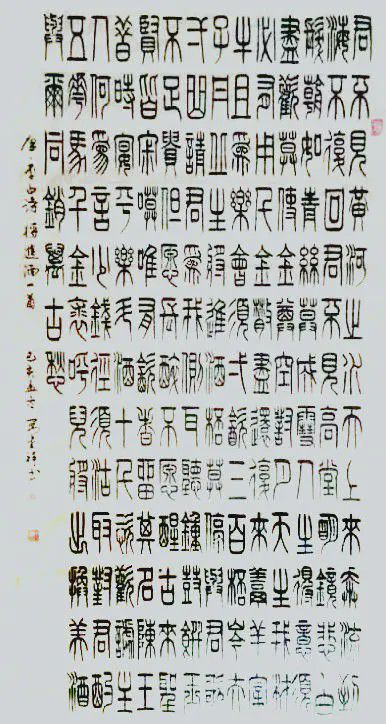 君不見黃河之水天上來奔流到
海不復回君不見高堂明鏡悲白
髮朝如青絲暮成雪人生得意須
盡歡莫使金尊空對月天生我材
必有用千金散盡還復來烹羊宰
牛且為樂會須弌飲三百杯岑夫
子丹丘生將進酒杯莫停與君歌
弌曲請君為我側耳聽鐘鼓饌玉
不足貴但願長醉不願醒古來聖
賢皆寂寞唯有飲者留其名陳王
昔時宴平樂斗酒十千恣歡謔主
人何為言少錢徑須沽取對君酌
五花馬千金裘呼兒將出換美酒
與爾同銷萬古愁
唐李白詩將進酒一首 己亥